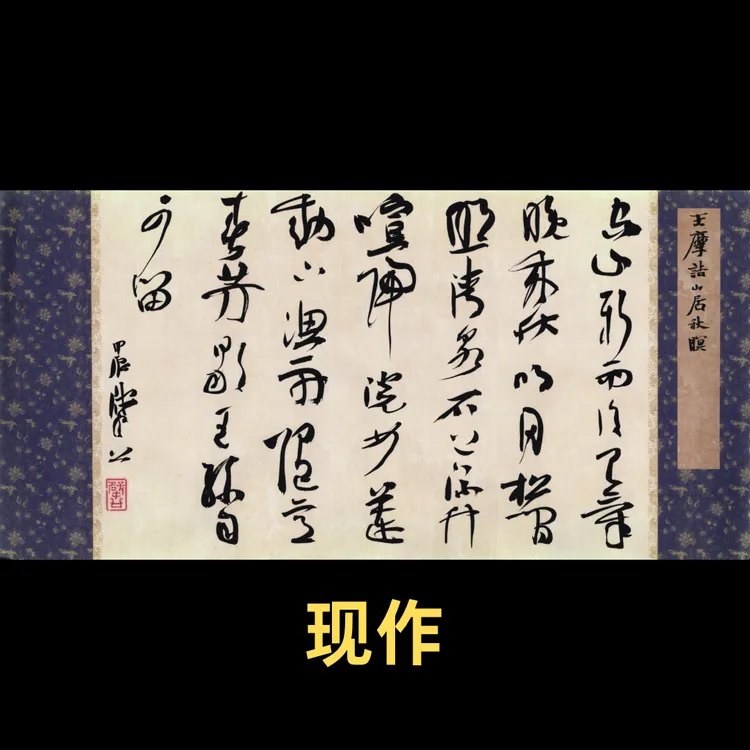 王摩詰山居秋暝
空山新雨後天氣
晚來秋明月松間
照清泉石上流竹
喧歸浣女蓮
動下漁舟隨意
春芳歇王孫自
可留
甲辰
现作